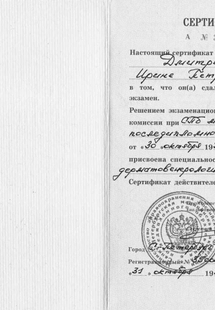 СЕРТИ
А №
Настоящий сертификат
Дмитр
Ирине Петр
в том, что он(а) сдал
экзамен.
Решением экзаменацион
комиссии при
последипломно
от "30" октября 19
присвоена специальнос
дерматовенеролог
Сертификат действителе
Город
Регистрационный №
31 октября 19